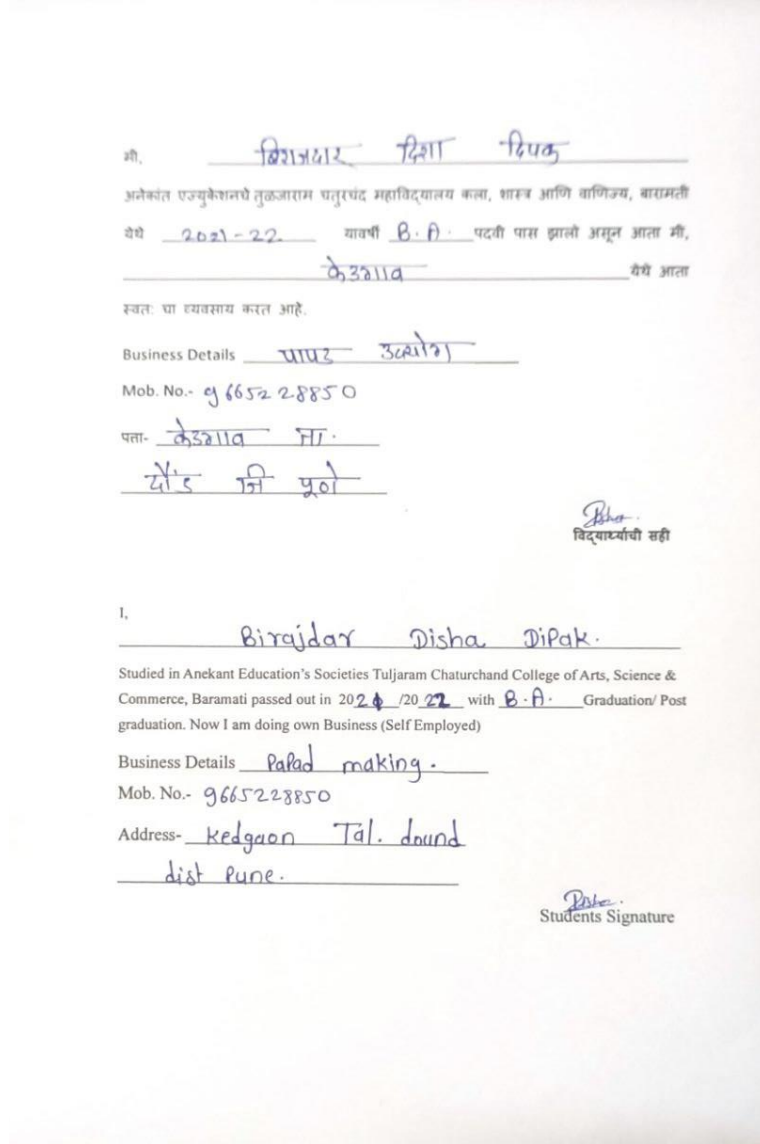 मी, बिराजदार दिशा दिपक
अनेकांत एज्युकेशनचे तुळजाराम चतुरचंद महाविद्यालय कला, शास्त्र आणि वाणिज्य, बारामती
येथे 2021-22 यावर्षी B.A. पदवी पास झालो असून आता मी,
केडगाव येथे आता
स्वतः चा व्यवसाय करत आहे.
Business Details पापड उद्योग
Mob. No.- 9665228850
पत्ता- केडगाव ता.
दौंड जि पूणे
विद्यार्थ्याची सही
I,
Birajdar Disha Dipak.
Studied in Anekant Education's Societies Tuljaram Chaturchand College of Arts, Science &
Commerce, Baramati passed out in 2021 /2022 with B.A. Graduation/ Post
graduation. Now I am doing own Business (Self Employed)
Business Details Papad making.
Mob. No.- 9665228850
Address- Kedgaon Tal. dound
dist Pune.
Students Signature